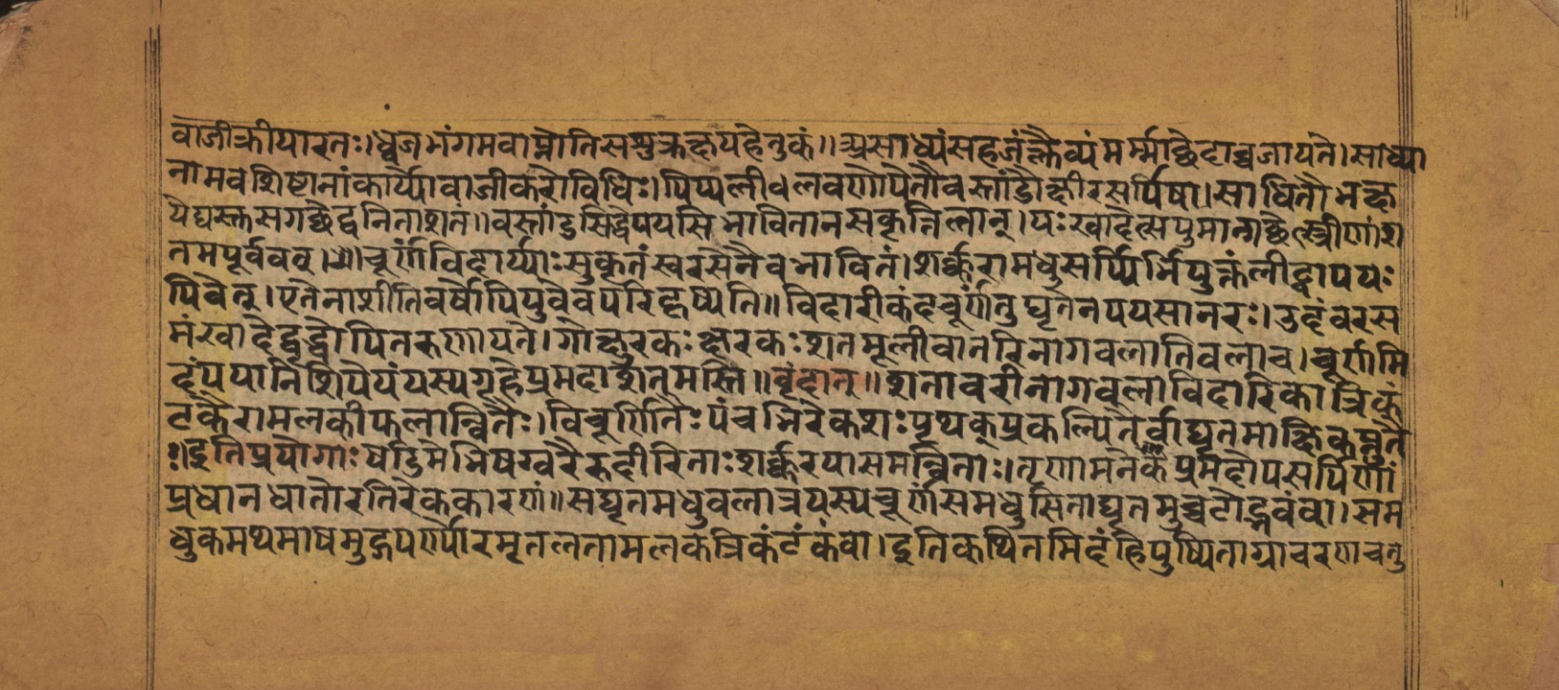 वाजीक्रीयारतः।ध्वजभंगमवाप्नोतिसशुक्रक्षयहेतुकं॥असाध्यंसहजंक्लैब्यंमर्म्मछेदाच्चजायते।साध्या
नामवशिष्टानांकार्य्योवाजीकरोविधिः।पिप्पलीधलवणोपेतौवस्तांडौक्षीरसर्पिषा।साधितौभक्ष
येद्यस्तुसगच्छेद्वनिताशतं॥वस्तांडसिद्धेपयसिभावितानसकृत्तिलान्।यःखादेत्सपुमान्गछेत्स्त्रीणांश
तमपूर्ववत्।ग्रे।चूर्णंविदार्य्याःसुकृतंस्वरसेनैवभावितं।शर्क्करामधुसर्प्पिर्भिर्युक्तंलीढ्वापयः
पिबेत्।एतेनाशीतिवर्षोपियुवेवपरिहृष्यति॥विदारीकंदचूर्णंतुघृतेनपयसानरः।उदुंवरस
मंखादेद्वृद्धोपितरुणायते।गोक्षुरकःक्षुरकःशतमूलीवानरिनागवलातिवलाच।चूर्णमि
दंपयपानिशिपेयंयस्यगृहेप्रमदाशतमस्ति॥वृंदात्॥शतावरीनागवलाविदारिकात्रिकं
टकैरामलकीफलान्वितैः।विचूर्णितैःपंचभिरेकशःपृथक्प्रकल्पितैर्वाघृतमाक्षिकप्लुतै
ः।इतिप्रयोगाःषडिमेभिषग्वरैरुदीरिताःशर्क्करयासमन्विताः।नृणामनेकप्रमदोपसर्पिणां
प्रधानधातोरतिरेककारणं॥सघृतमधुवलात्रयस्यचूर्णंसमधुसिताघृतमुच्चटोद्भवंवा।सम
धुकमथमाषमुद्गपर्ण्योरमृतलतामलकत्रिकंटकंवा।इतिकथितमिदंहिपुष्पिताग्राचरणचतु